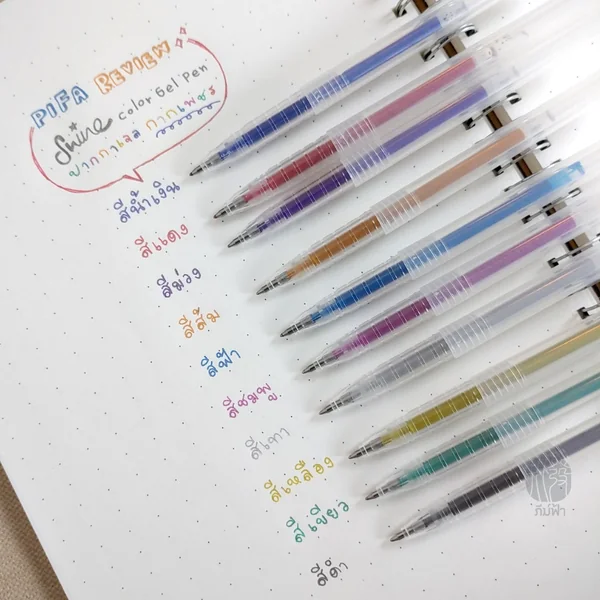 PIFA REVIEW
Shine Color Gel Pen
ปากกาเจล กากเพชร
สีน้ำเงิน
สีแดง
สีม่วง
สีส้ม
สีฟ้า
สีชมพู
สีเทา
สีเหลือง
สีเขียว
สีดำ
ภิม์ฟ้า